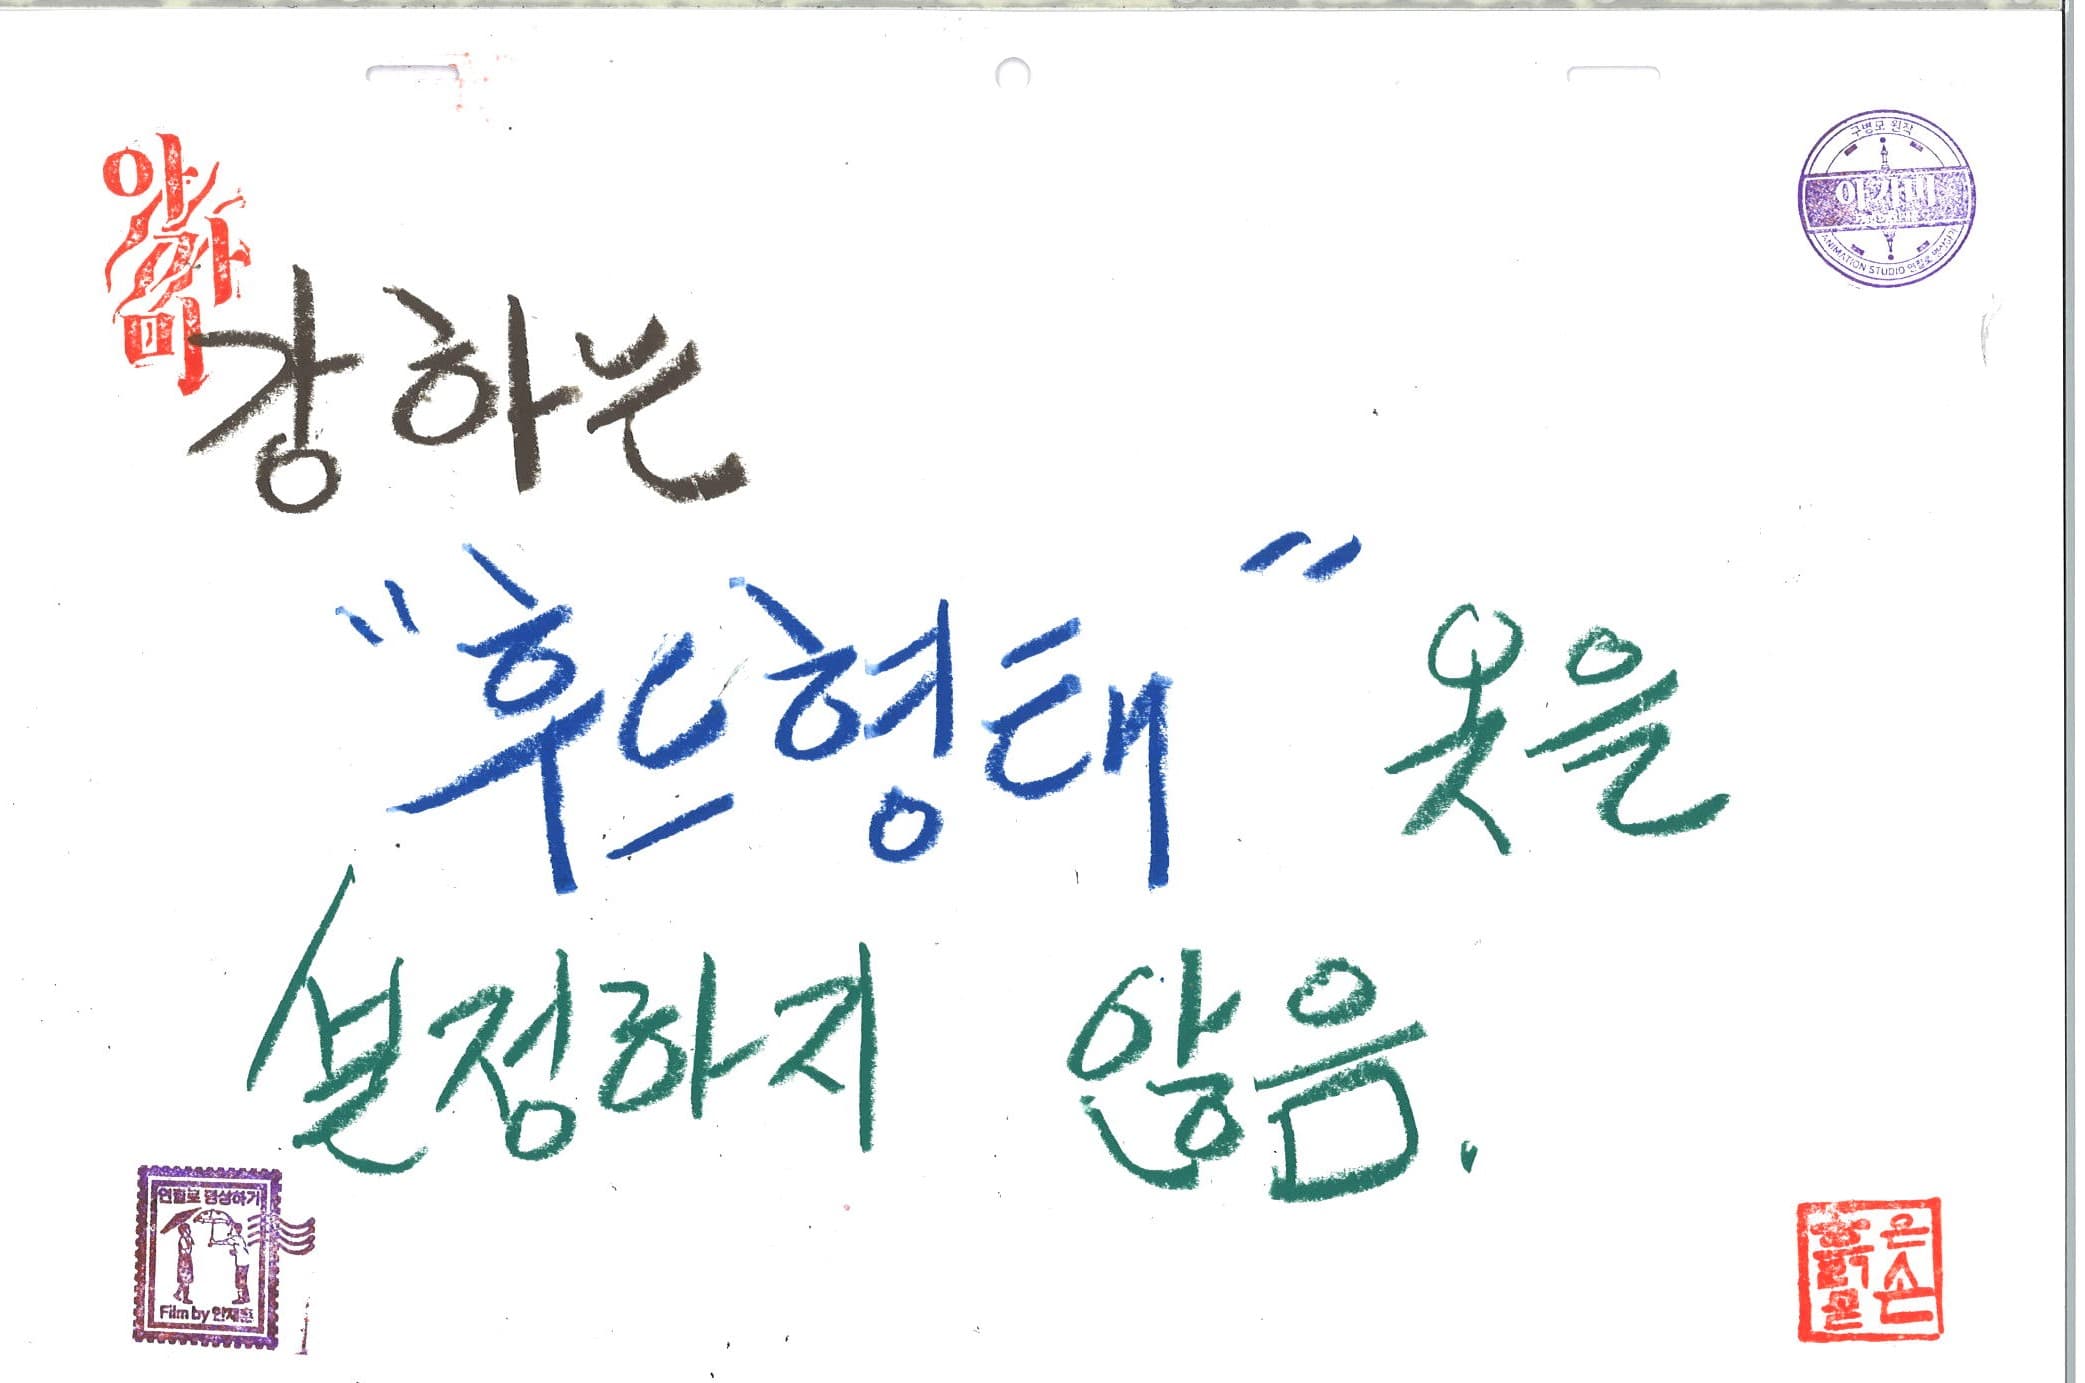 아가미
구병모 원작
아가미
ANIMATION STUDIO 연필로 명상하기
강하는
"후드형태" 옷을
설정하지 않음.
연필로 명상하기
Film by 안재훈